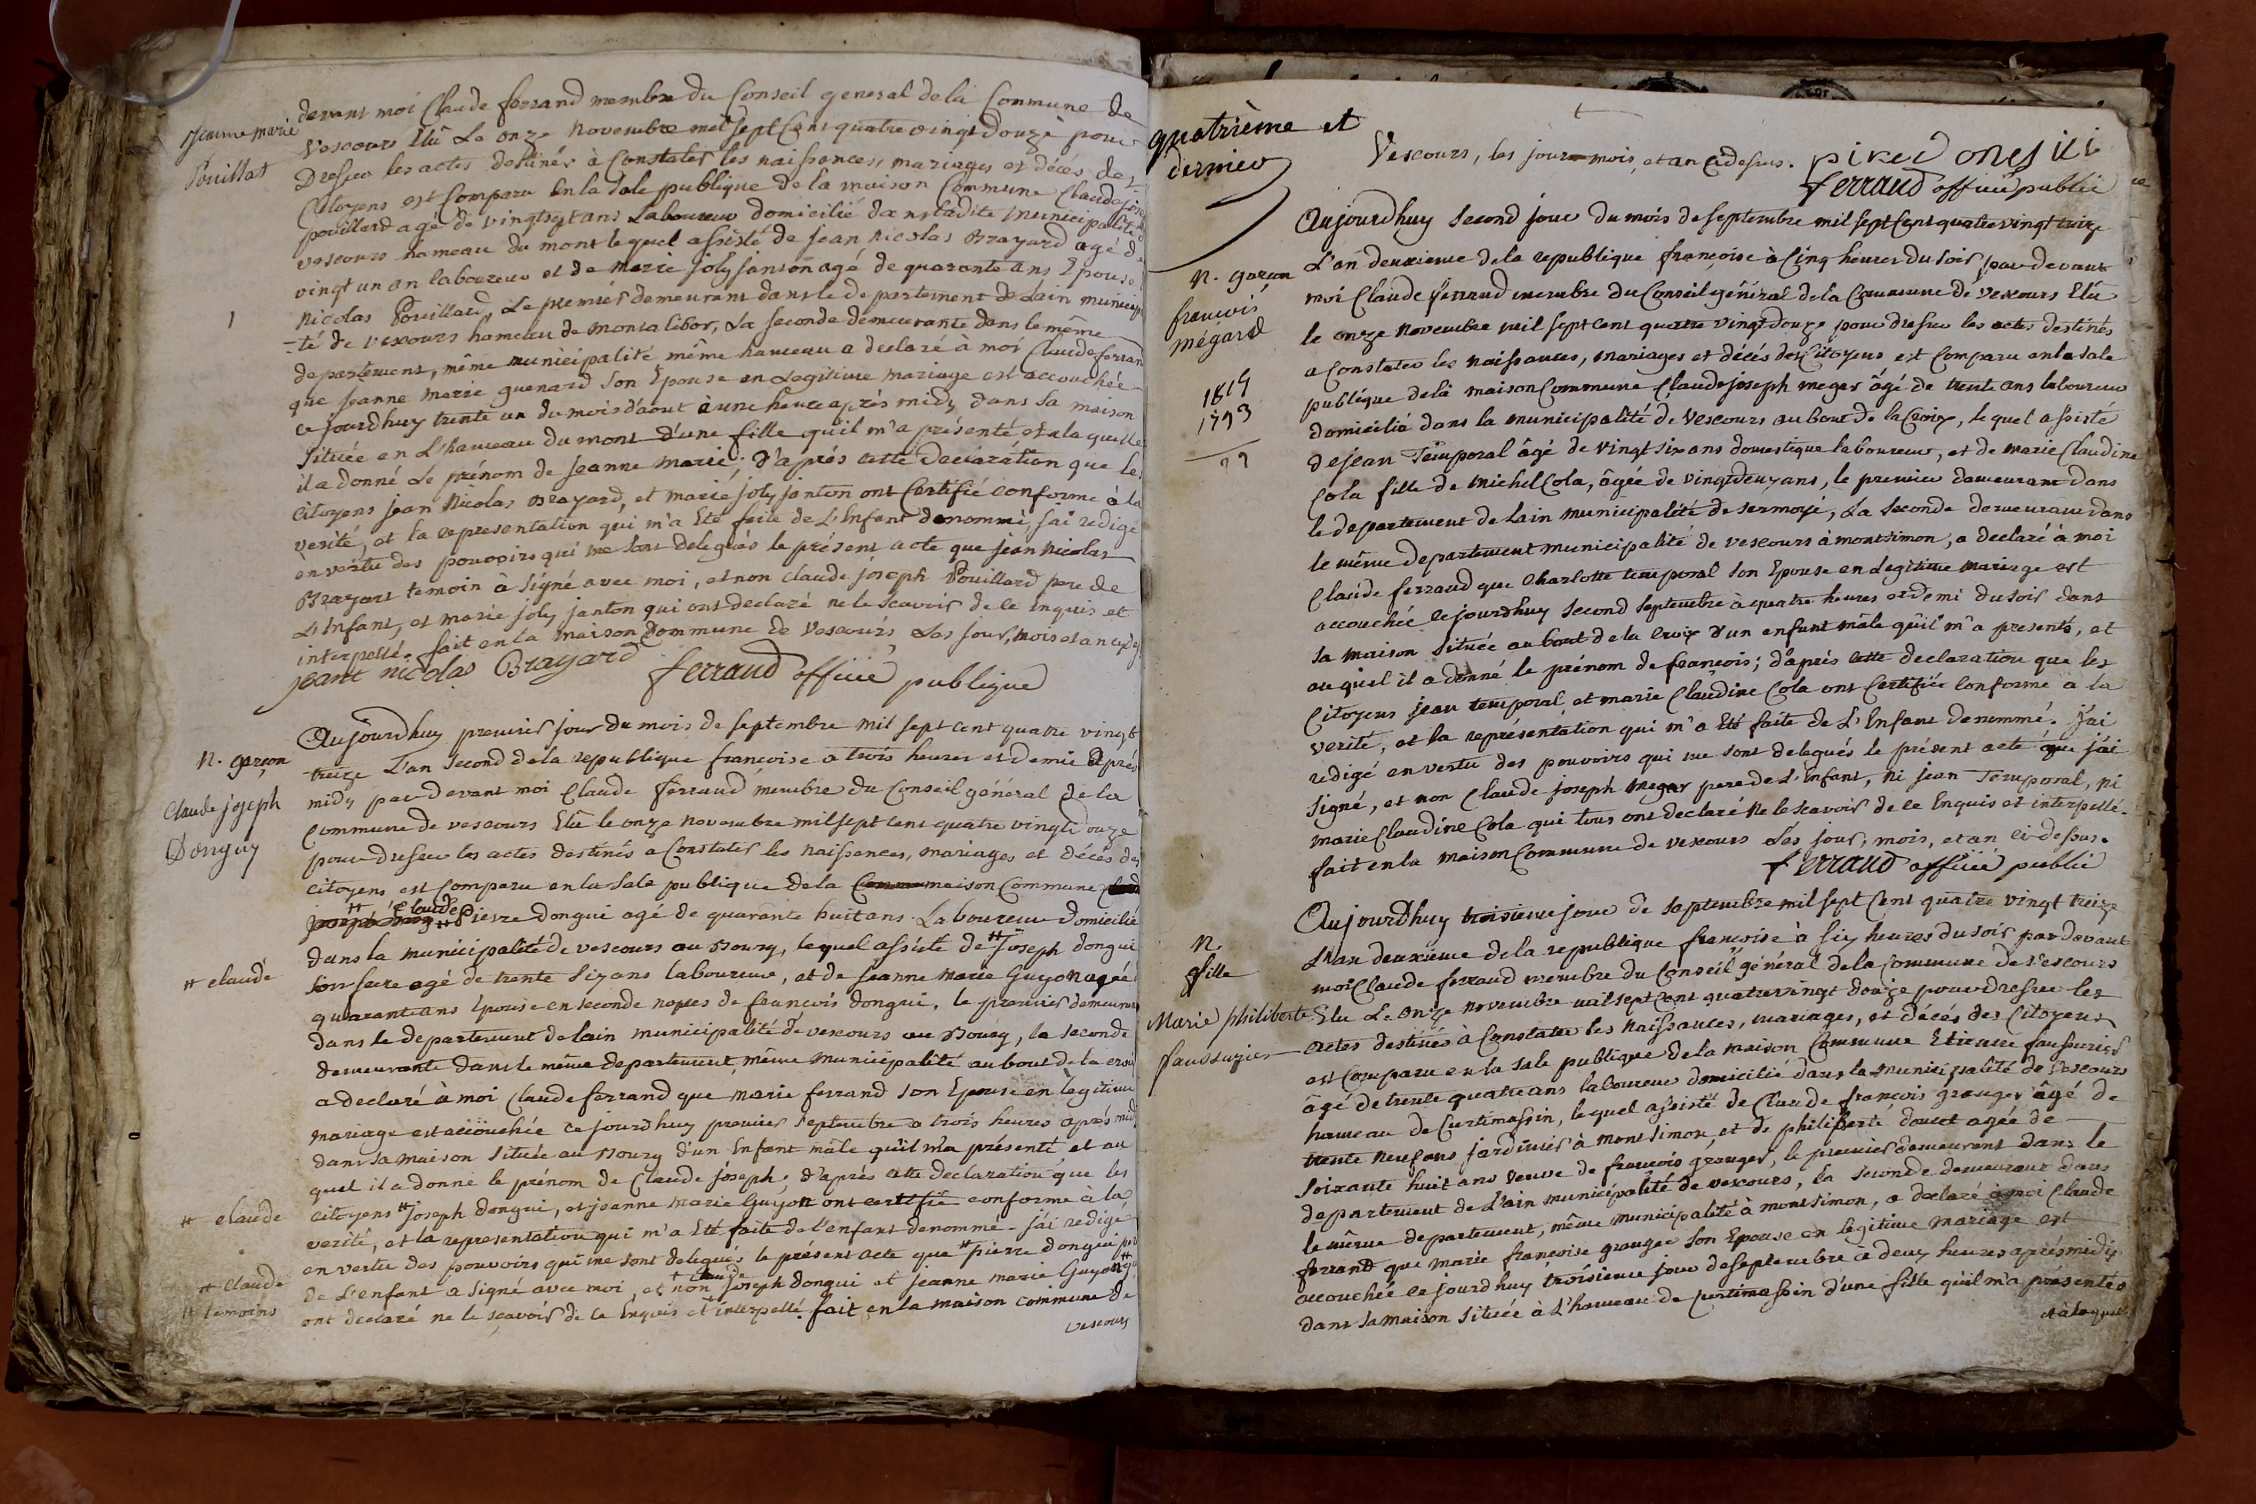 Jeanne marie
Pouillat
1
devant moi Claude ferrand membre du Conseil general de la Commune de
Vescours Elû Le onze Novembre mil sept Cent quatre vingt Douze pour
Dresser les actes destinés à Constater les naissances, mariages et décés des
Citoyens est Comparu en la Sale publique de la maison Commune Claude joseph
pouillard agé de vingt sept ans Laboureur domicilié dans ladite municipalité
vescours hameau du mont lequel assisté de jean nicolas Brayard agé de
vingt un an laboureur et de Marie joly janton agé de quarante ans Epouse
Nicolas Pouillard, Le premier demeurant dans le departement de Lain municip
-té de vescours hameau de montalibor, La seconde demeurante dans le même
departement, même municipalité même hameau a declaré à moi Claude ferrand
que Jeanne Marie guenard Son Epouse en Legitime mariage est accouchée
ce jourdhuy trente un du mois d'aout à une heure après midy dans sa maison
Située en L'hameau du mont d'une fille quil m'a présenté et a la quelle
il a donné Le prénom de Jeanne Marie; D'après cette Declaration que les
Citoyens jean Nicolas Brayard, et marie joly janton ont Certifié conforme à la
verité, et la representation qui m'a Eté faite de L'Enfant denommé, j'ai redigé
en vertu des pouvoirs qui me sont delegués le présent acte que jean nicolas
Brayard temoin à signé avec moi, et non Claude joseph Pouillard pere de
L'Enfant, et marie joly janton qui ont declaré ne le Scavoir de ce Enquis et
interpellé. fait en la maison Commune de Vescours Les jour, mois et an
jeant nicolas Brayard ferraud officié publique
N. garçon
Claude joseph
Donguy
Aujourdhuy premier jour du mois de septembre mil sept cent quatre vingt
treize L'an Second de la republique françoise a trois heures et demie après
midy par devant moi Claude ferraud membre du Conseil général de la
Commune de vescours Elû le onze Novembre mil sept cent quatre vingt douze
pour dresser les actes destinés a Constater les naissances, mariages et décés des
Citoyens est Comparu en la Sale publique de la maison Commune
Claude
Pierre dongui agé de quarante huit ans Laboureur Domicilié
dans la municipalité de vescours au Bourg, lequel assisté de # Joseph dongui
# claude
Son frere agé de trente Six ans laboureur, et de Jeanne Marie Guyon agée
quarante ans Epouse en Seconde nopces de françois dongui, le premier demeurant
dans le departement de lain municipalité de vescours au Bourg, la Seconde
demeurante dans le même departement même municipalité au bout de la croix
a declaré à moi Claude ferrand que Marie ferrand Son Epouse en legitime
mariage est accouchée ce jourdhuy premier Septembre a trois heures après midy
dans sa maison Située au Bourg d'un Enfant mâle quil m'a présenté et au
quel il a donné le prénom de Claude joseph; d'après cette declaration que les
Citoyens # Joseph dongui, et jeanne marie Guyon ont certifié conforme à la
# claude
verité, et la representation qui m'a Eté faite de l'enfant denommé. j'ai redigé
en vertu des pouvoirs qui me sont delegués le présent acte que # pierre dongui
# claude
de L'enfant a signé avec moi, et non joseph dongui et jeanne marie Guyon
# temoins
ont declaré ne le sçavoir de ce Enquis et interpellé. fait en la maison commune de
vescours
quatrième et
dernier
Vescours, les jour mois, et an cidessus.
ferraud officié public
Aujourdhuy Second jour du mois de septembre mil sept Cent quatre vingt treize
N. garçon
françois
mégard
1815
1793
22
L'an deuxieme de la republique françoise à Cinq heures du soir par devant
moi Claude ferraud membre du Conseil général de la Commune de vescours Elû
le onze Novembre mil sept cent quatre vingt douze pour dresser les actes destinés
a Constater les naissances, mariages et décés des Citoyens est Comparu en la sale
publique de la maison Commune Claude joseph megar âgé de trente ans laboureur
domicilié dans la municipalité de Vescours au bout de la Croix, le quel assisté
de jean Temporal âgé de vingt Six ans domestique laboureur, et de marie Claudine
Cola fille de michel Cola, âgée de vingt deux ans, le premier demeurant dans
le departement de Lain municipalité de sermoyé, La Seconde demeurant dans
le même departement municipalité de vescours à montsimon, a declaré à moi
Claude ferraud que Charlotte temporal Son Epouse en Legitime mariage est
accouchée ce jourdhuy Second Septembre à quatre heures et demi du soir dans
sa maison Située au bout de la Croix d'un enfant mâle quil m'a presenté, et
au quel il a donné le prénom de françois; d'après cette declaration que les
Citoyens jean temporal, et marie Claudine Cola ont Certifié Conforme à la
verité, et la représentation qui m'a Eté faite de L'Enfant denommé. j'ai
redigé en vertu des pouvoirs qui me sont delegués le présent acte que j'ai
Signé, et non Claude joseph megar pere de L'Enfant, ni jean Temporal, ni
marie Claudine Cola qui tous ont declaré ne le Scavoir de ce Enquis et interpellé.
fait en la maison Commune de vescours Les jour, mois, et an ci-dessus.
ferraud officié public
N.
fille
Marie philiberte
faussurier
Aujourdhuy troisieme jour de septembre mil sept Cent quatre vingt treize
L'an deuxieme de la republique françoise à six heures du soir par devant
moi Claude ferraud membre du Conseil général de la Commune de Vescours
Elu Le onze Novembre mil sept cent quatre vingt douze pour dresser les
actes destinés à Constater les naissances, mariages, et décés des Citoyens
est Comparu en la sale publique de la maison Commune Etienne faussurier
âgé de trente quatre ans laboureur domicilié dans la municipalité de Vescours
hameau de Curtimassin, lequel assisté de Claude françois granger âgé de
trente neuf ans jardinier à mont simon, et de philiberte doucet agée de
Soixante huit ans veuve de françois granger, le premier demeurant dans le
departement de L'ain municipalité de vescours, la Seconde demeurant dans
le même departement, même municipalité à montsimon, a declaré à moi Claude
ferraud que marie françoise granger Son Epouse en legitime mariage est
accouchée ce jourdhuy troisieme jour de septembre a deux heures après midy
dans sa maison Située à L'hameau de Curtimassin d'une fille quil m'a présentée
et à laquelle